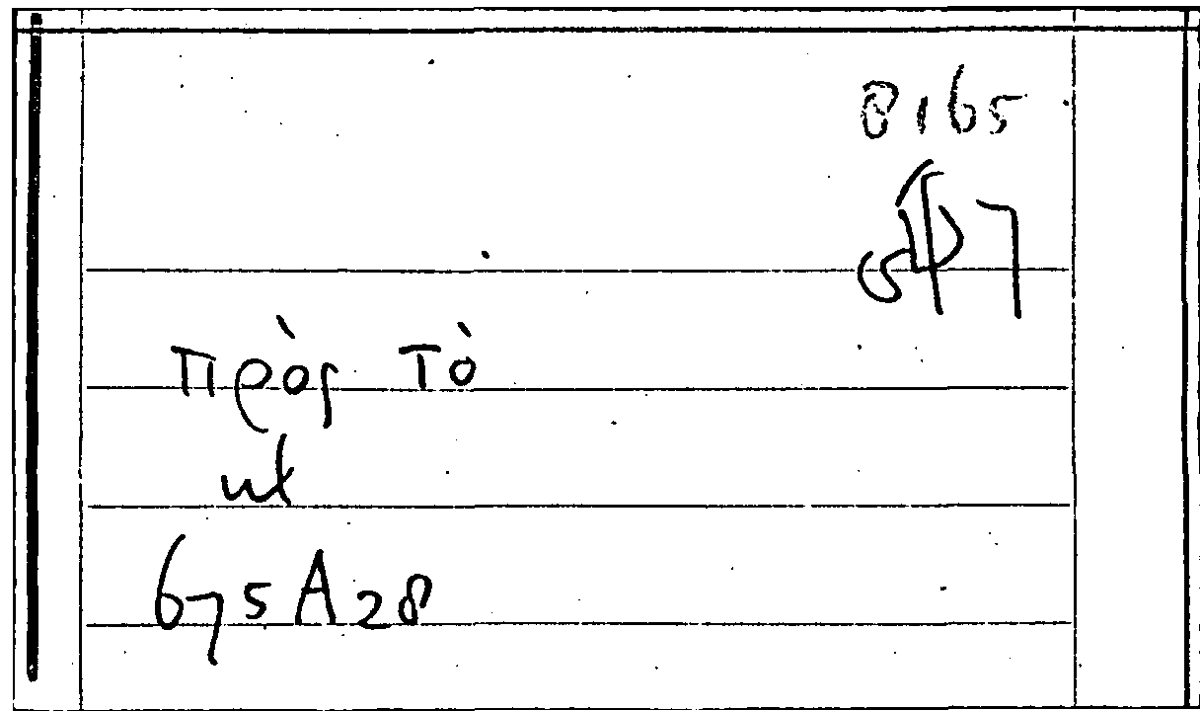 8165
πρὸς τὸ
ut
675A28